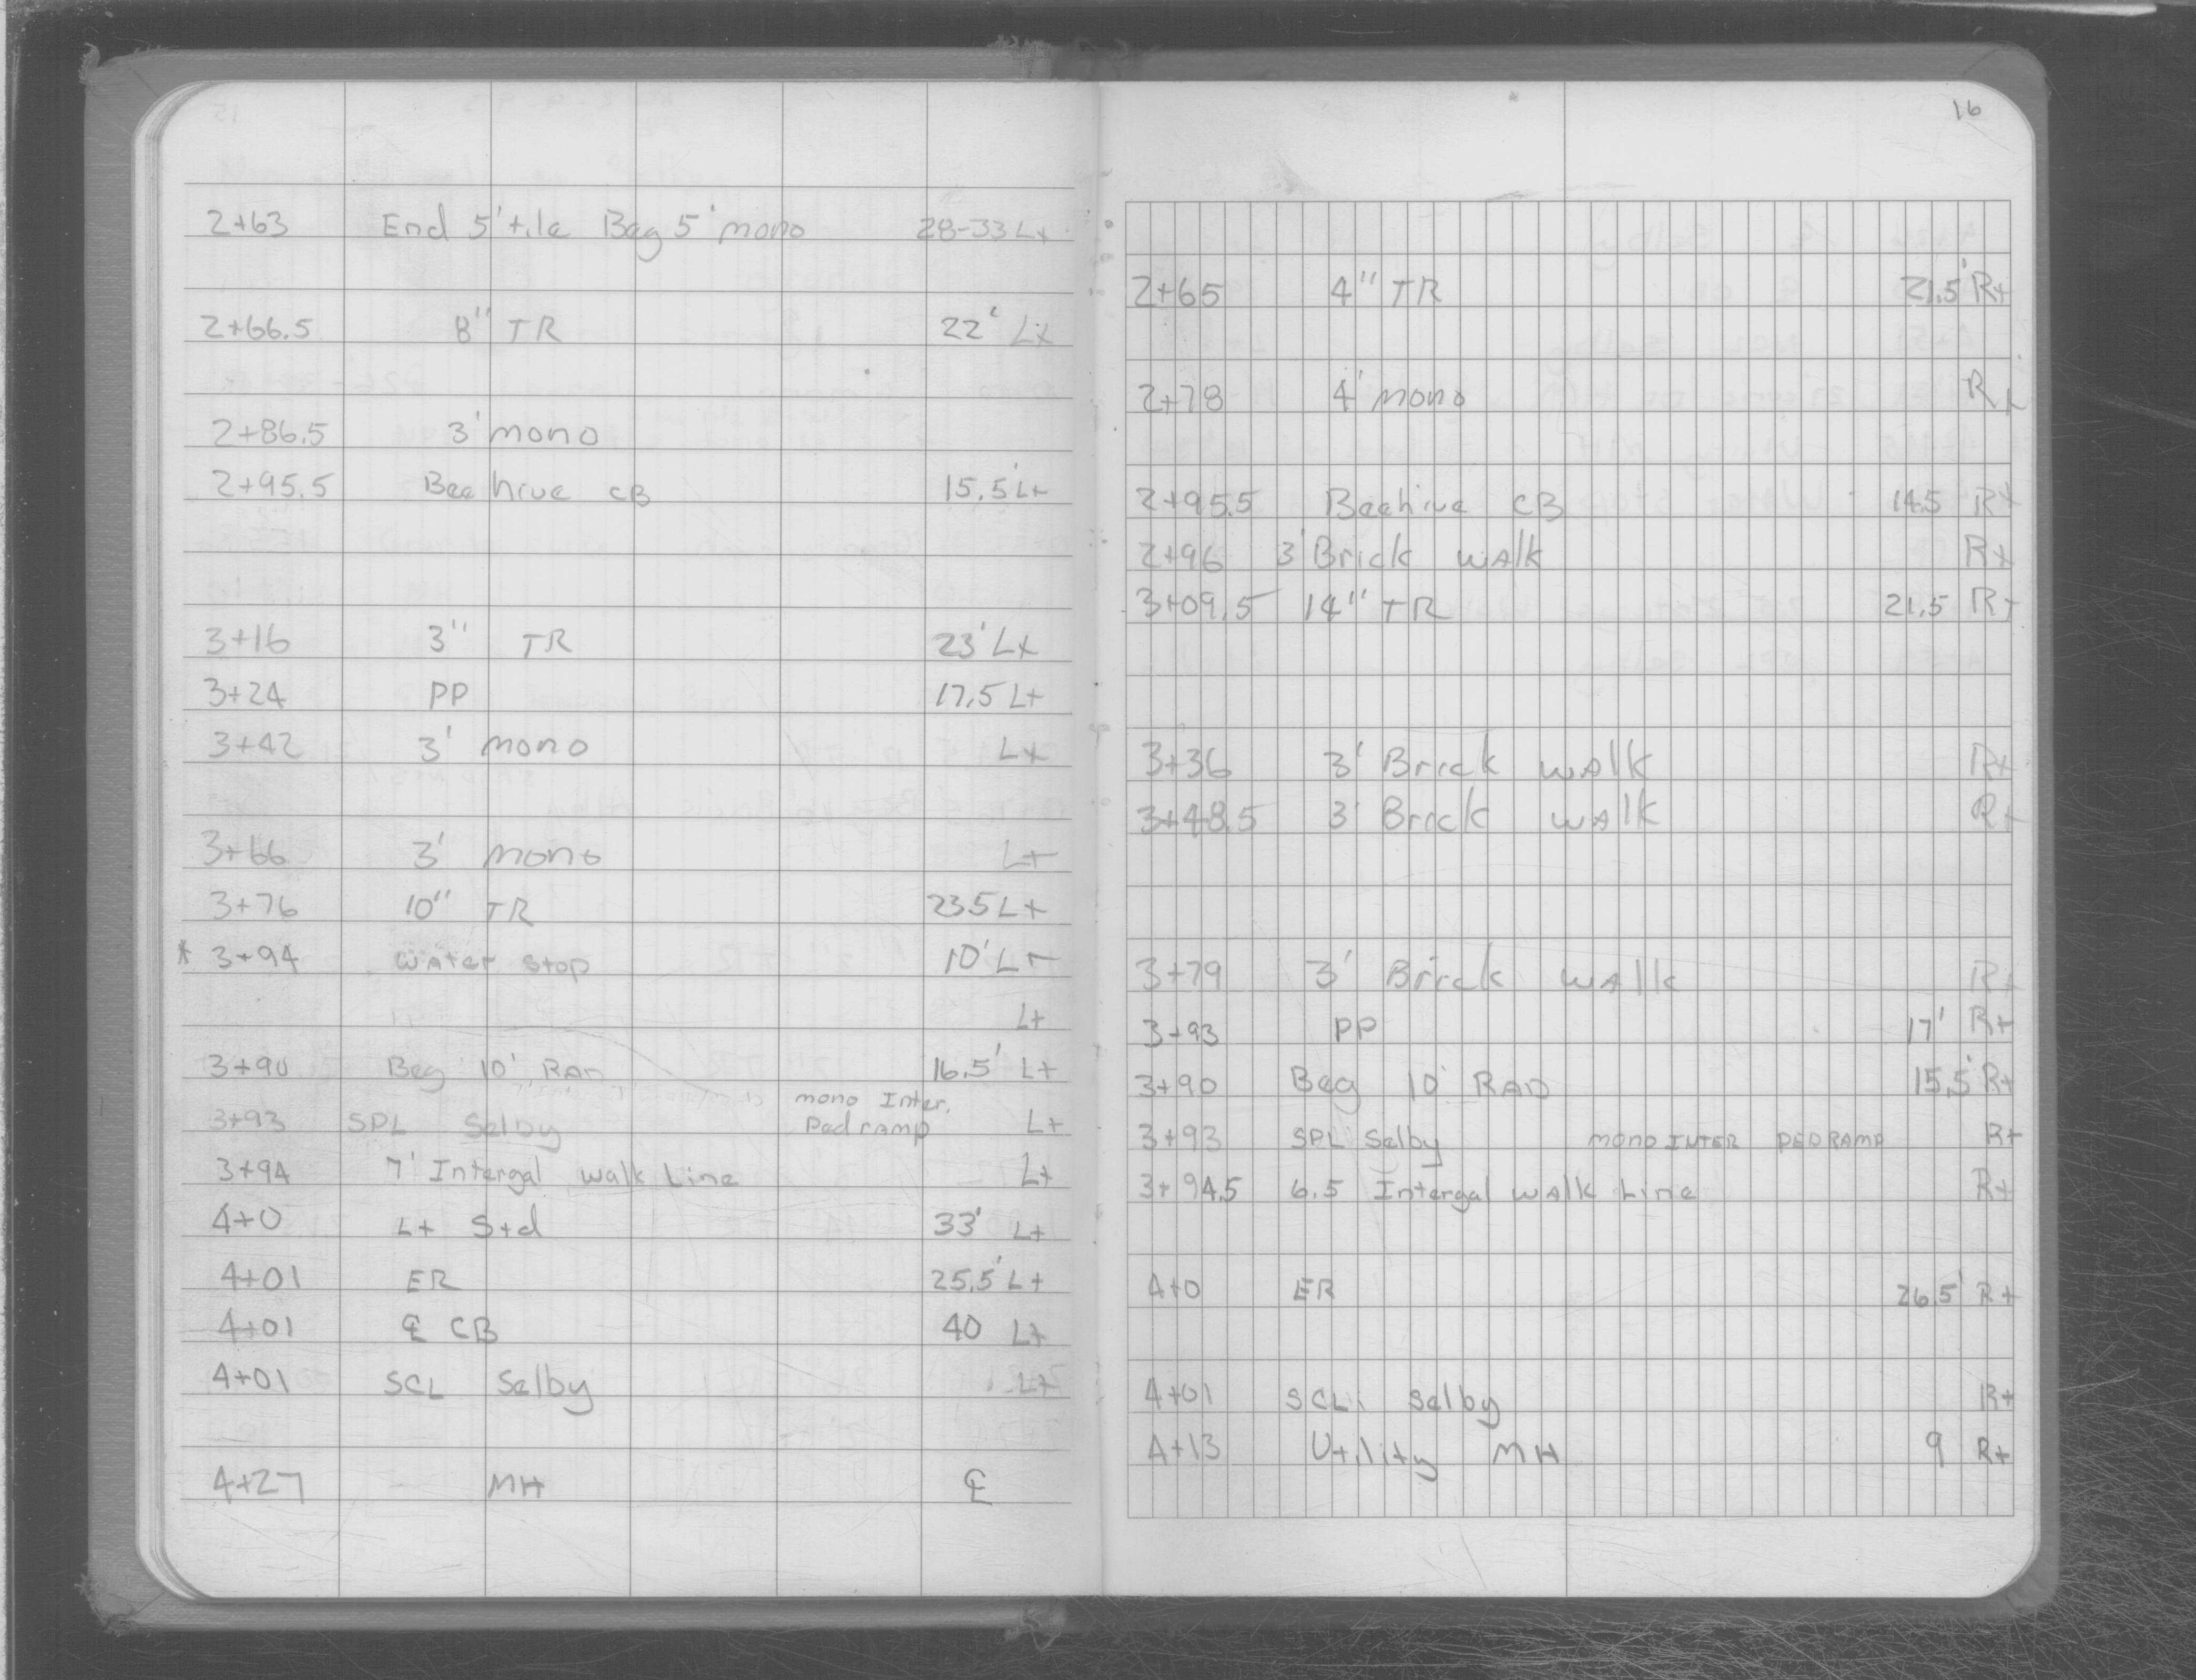 2+63 End 5' tile Beg 5' mono 28-33 Lt
2+66.5 8" TR 22' Lt
2+86.5 3' mono
2+95.5 Beehive CB 15.5' Lt
3+16 3" TR 23' Lt
3+24 PP 17.5 Lt
3+42 3' mono Lt
3+66 3' mono Lt
3+76 10" TR 23.5 Lt
* 3+94 Water Stop 10' Lt
Lt
3+90 Beg 10' RAD 16.5' Lt
mono Inter.
3+93 SPL Selby Ped ramp Lt
3+94 7' Intergal Walk Line Lt
4+0 Lt Std 33' Lt
4+01 ER 25.5' Lt
4+01 ℄ CB 40 Lt
4+01 SCL Selby Lt
4+27 MH ℄
16
2+65 4" TR 21.5' Rt
2+78 4' mono Rt
2+95.5 Beehive CB 14.5 Rt
2+96 3' Brick walk Rt
3+09.5 14" TR 21.5 Rt
3+36 3' Brick walk Rt
3+48.5 3' Brick walk Rt
3+79 3' Brick walk Rt
3+93 PP 17' Rt
3+90 Beg 10' RAD 15.5' Rt
3+93 SPL Selby mono INTER PED RAMP Rt
3+94.5 6.5 Intergal walk Line Rt
4+0 ER 26.5' Rt
4+01 SCL Selby Rt
4+13 Utility MH 9 Rt